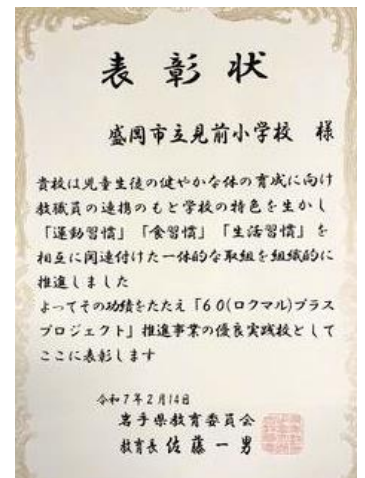 表彰状
盛岡市立見前小学校 様
貴校は児童生徒の健やかな体の育成に向け
教職員の連携のもと学校の特色を生かし
「運動習慣」「食習慣」「生活習慣」を
相互に関連付けた一体的な取組を組織的に
推進しました
よってその功績をたたえ「60(ロクマル)プラス
プロジェクト」推進事業の優良実践校として
ここに表彰します
令和7年2月14日
岩手県教育委員会
教育長 佐藤一男